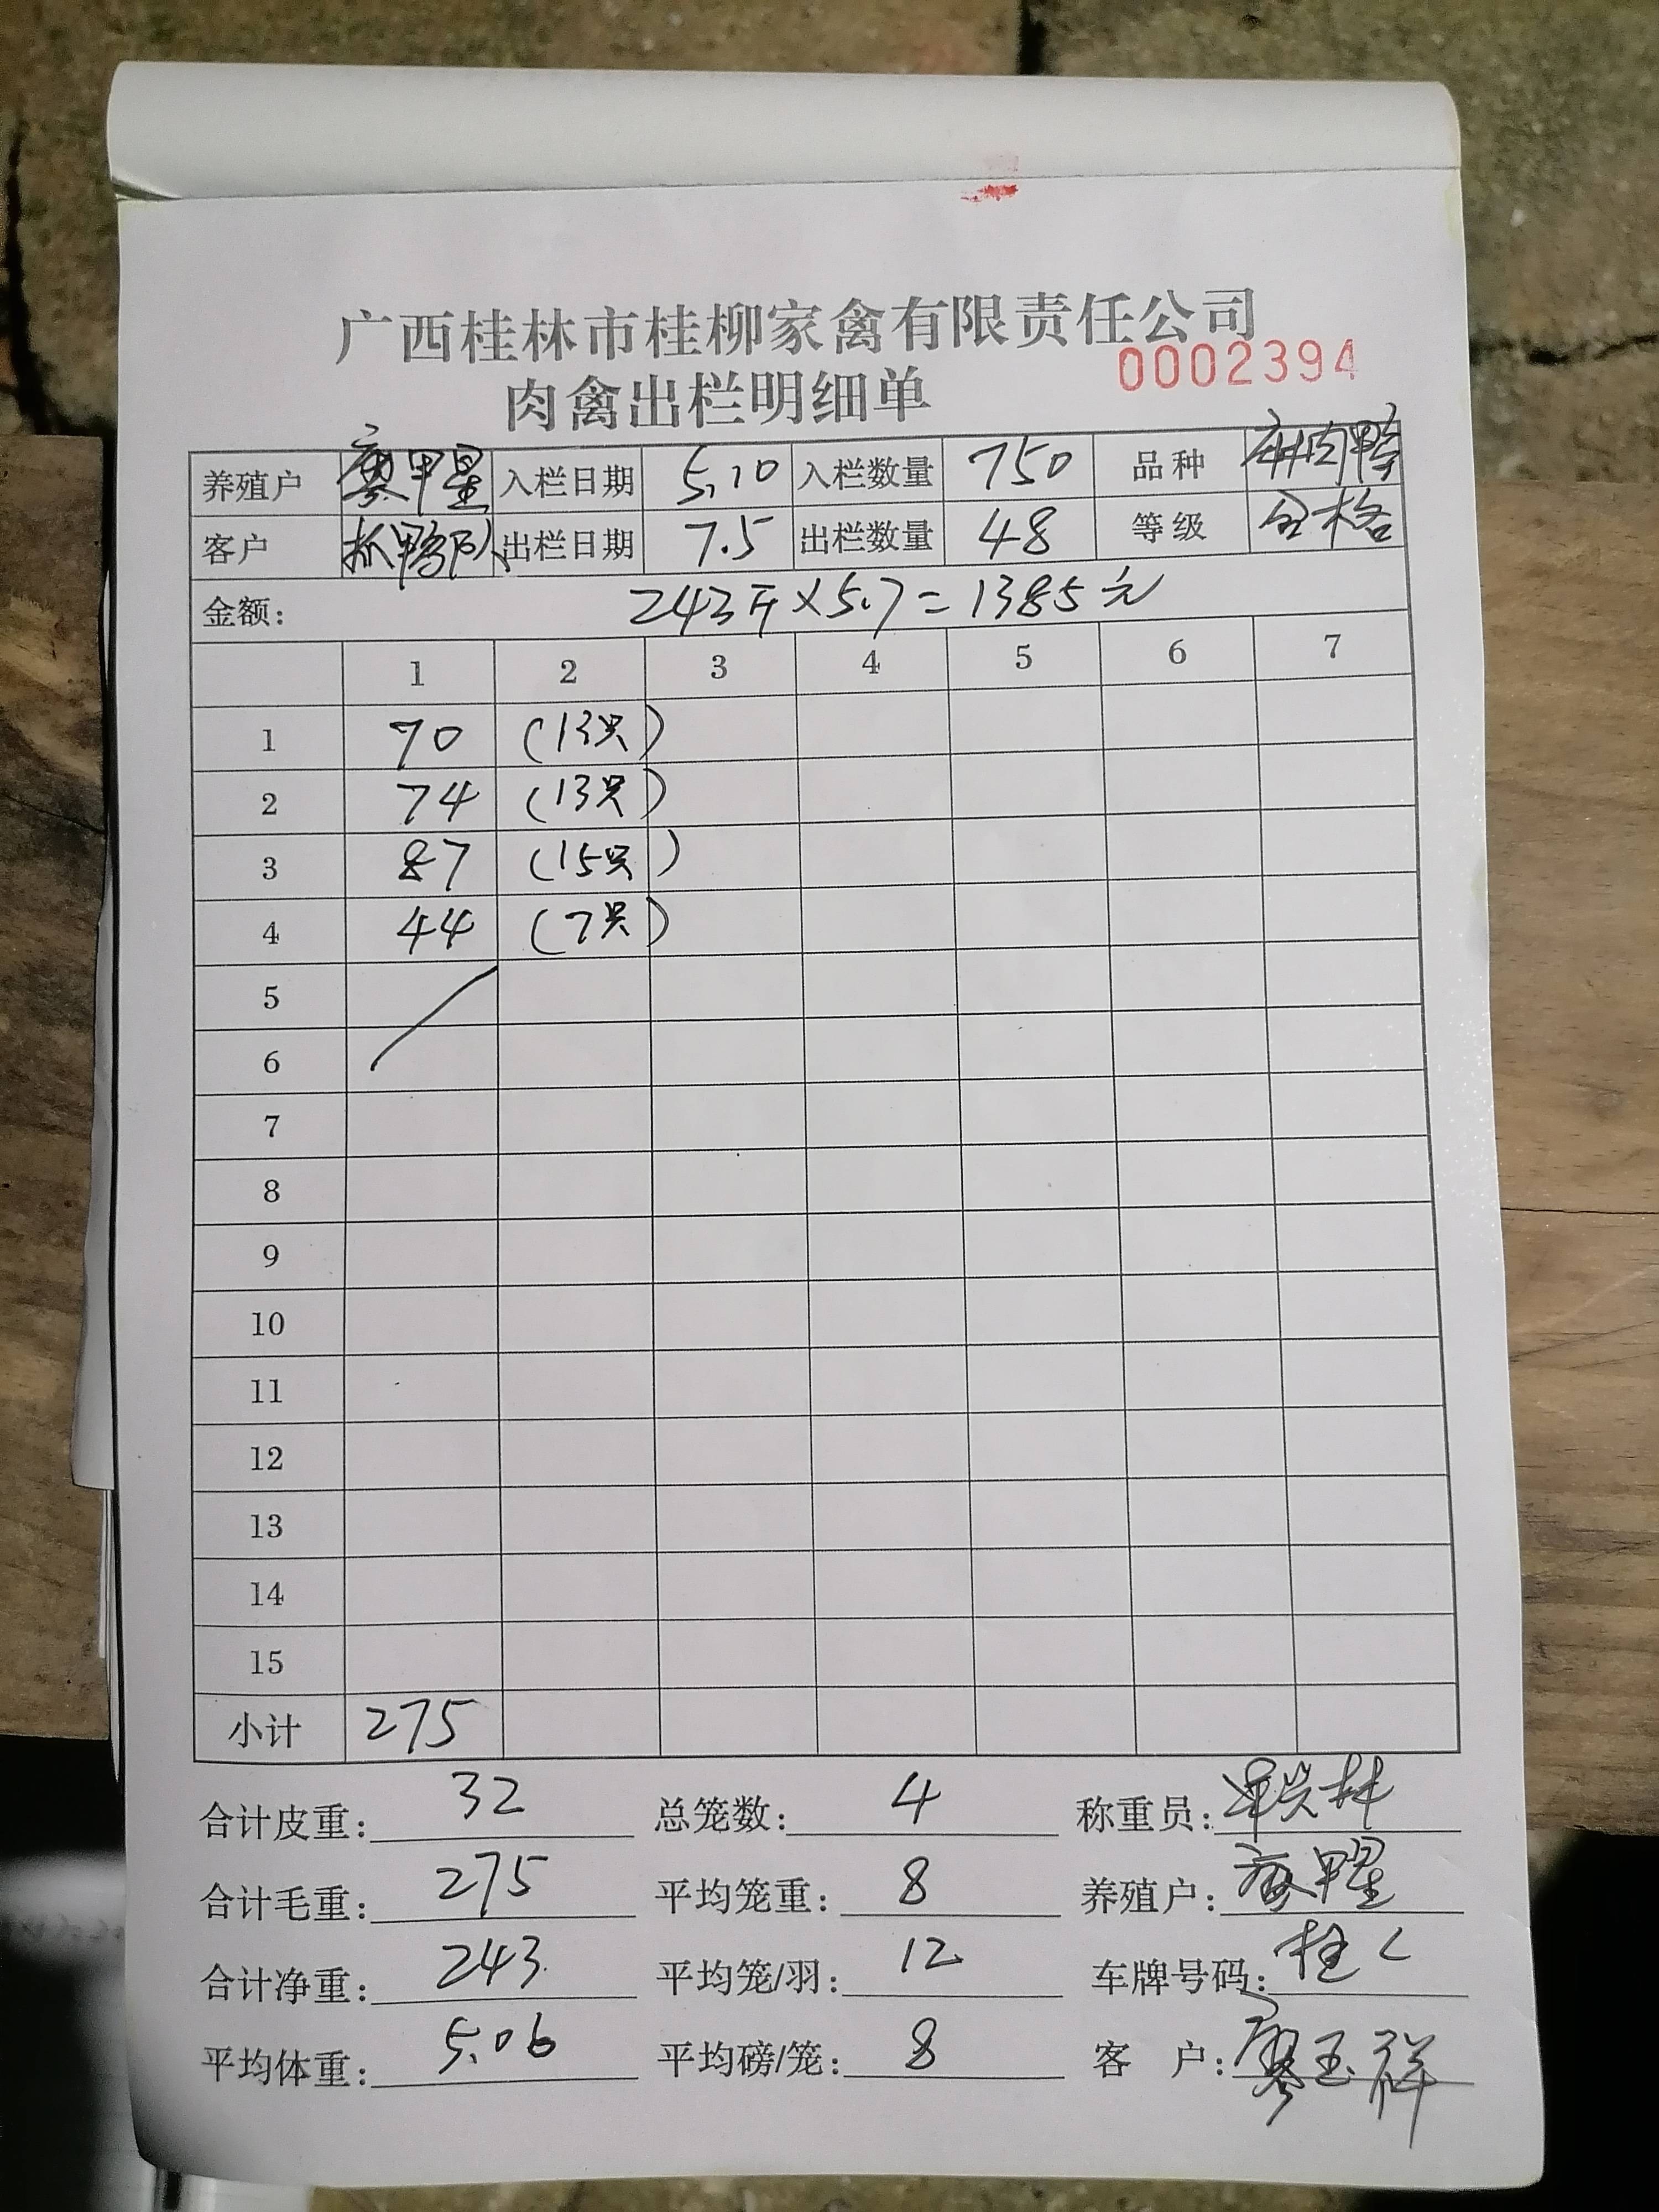 广西桂林市桂柳家禽有限责任公司
0002394
肉禽出栏明细单
养殖户 廖甲星 入栏日期 5.10 入栏数量 750 品种 麻肉鸭
客户 抓鸭队 出栏日期 7.5 出栏数量 48 等级 合格
金额: 243斤×5.7=1385元
1 2 3 4 5 6 7
1 70 (13只)
2 74 (13只)
3 87 (15只)
4 44 (7只)
5
6
7
8
9
10
11
12
13
14
15
小计 275
合计皮重: 32 总笼数: 4 称重员:
合计毛重: 275 平均笼重: 8 养殖户: 廖甲星
合计净重: 243 平均笼/羽: 12 车牌号码: 桂C
平均体重: 5.06 平均磅/笼: 8 客 户: 廖玉祥